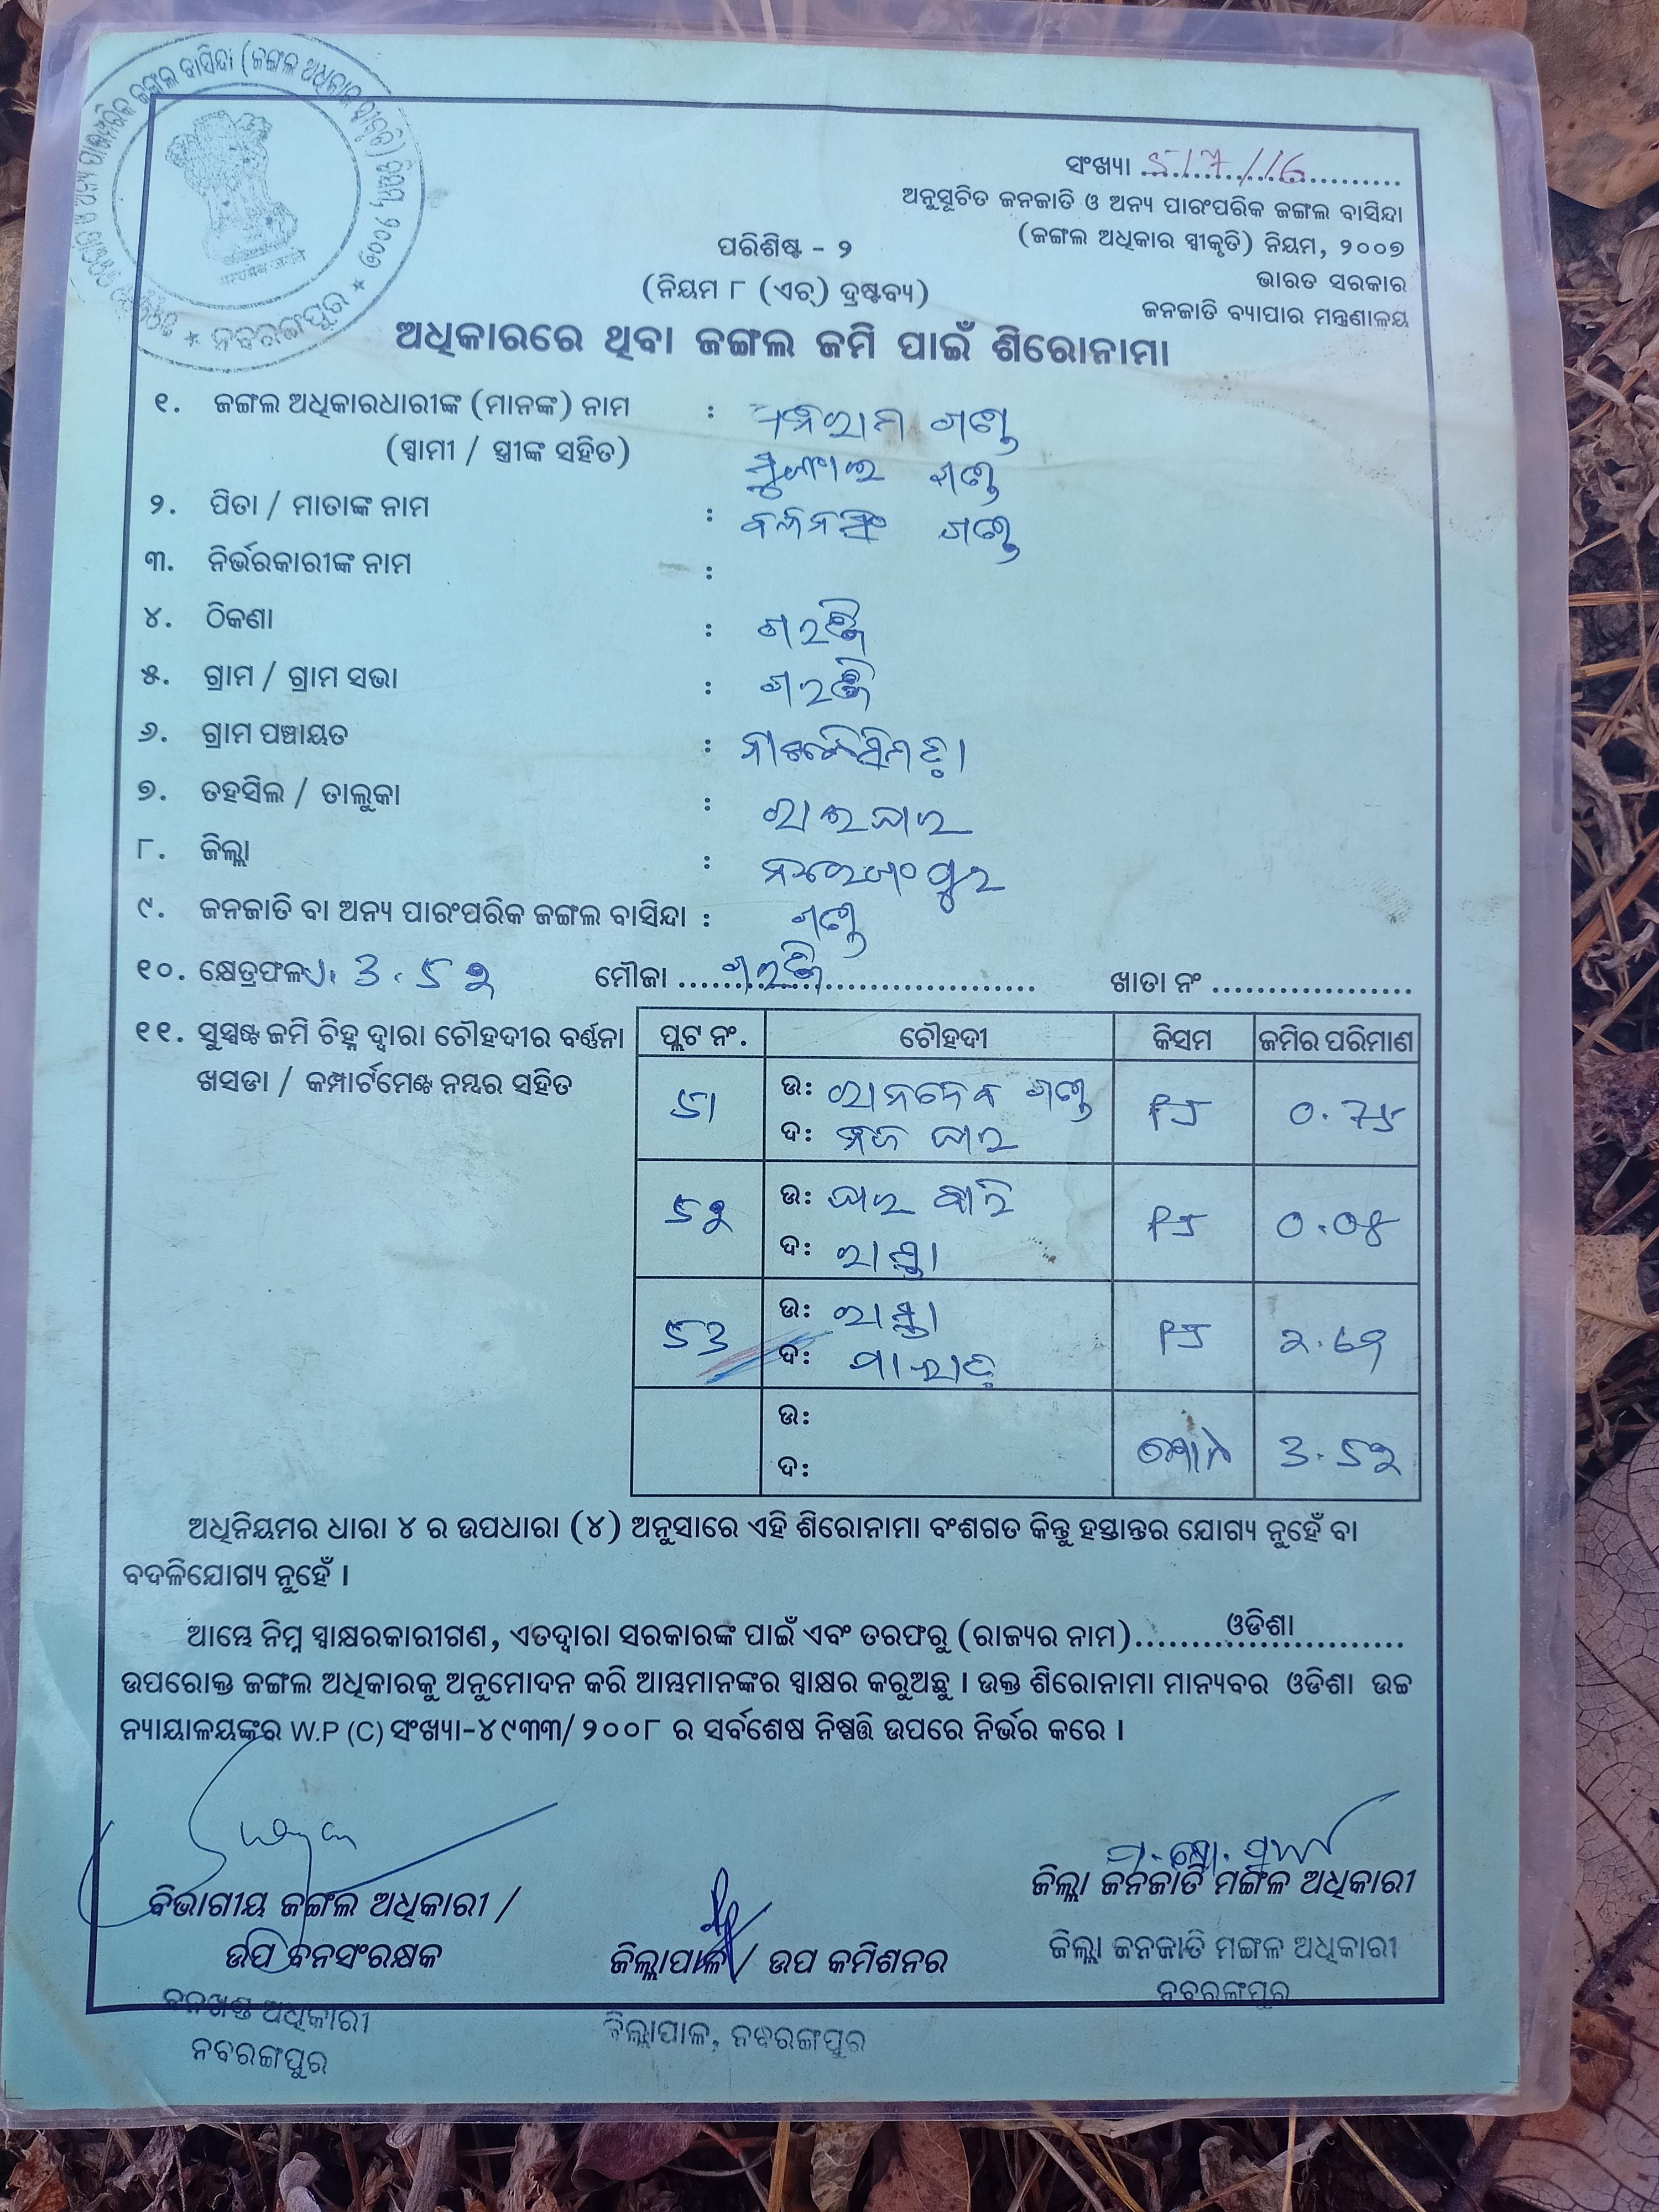 ସଂଖ୍ୟା
ଅନୁସୂଚିତ ଜନଜାତି ଓ ଅନ୍ୟ ପାରଂପରିକ ଜଙ୍ଗଲ ବାସିନ୍ଦା
(ଜଙ୍ଗଲ ଅଧିକାର ସ୍ୱୀକୃତି) ନିୟମ, ୨୦୦୭
ଭାରତ ସରକାର
ଜନଜାତି ବ୍ୟାପାର ମନ୍ତ୍ରଣାଳୟ
ପରିଶିଷ୍ଟ - ୨
(ନିୟମ ୮ (ଏଚ୍) ଦ୍ରଷ୍ଟବ୍ୟ)
ଅଧିକାରରେ ଥିବା ଜଙ୍ଗଲ ଜମି ପାଇଁ ଶିରୋନାମା
୧. ଜଙ୍ଗଲ ଅଧିକାରଧାରୀଙ୍କ (ମାନଙ୍କ) ନାମ : ଗଣ୍ଡ
(ସ୍ୱାମୀ / ସ୍ତ୍ରୀଙ୍କ ସହିତ) ଗଣ୍ଡ
୨. ପିତା / ମାତାଙ୍କ ନାମ : ଗଣ୍ଡ
୩. ନିର୍ଭରକାରୀଙ୍କ ନାମ :
୪. ଠିକଣା :
୫. ଗ୍ରାମ / ଗ୍ରାମ ସଭା :
୬. ଗ୍ରାମ ପଞ୍ଚାୟତ :
୭. ତହସିଲ / ତାଲୁକା : ରାଇଘର
୮. ଜିଲ୍ଲା : ନବରଂଗପୁର
୯. ଜନଜାତି ବା ଅନ୍ୟ ପାରଂପରିକ ଜଙ୍ଗଲ ବାସିନ୍ଦା : ଗଣ୍ଡ
୧୦. କ୍ଷେତ୍ରଫଳ 3.52 ମୌଜା ଖାତା ନଂ
୧୧. ସୁସ୍ପଷ୍ଟ ଜମି ଚିହ୍ନ ଦ୍ୱାରା ଚୌହଦୀର ବର୍ଣ୍ଣନା
ଖସଡା / କମ୍ପାର୍ଟମେଣ୍ଟ ନମ୍ବର ସହିତ
ପ୍ଲଟ ନଂ. ଚୌହଦୀ କିସମ ଜମିର ପରିମାଣ
51 ଉ: ଗଣ୍ଡ PJ 0.75
ଦ:
52 ଉ: PJ 0.08
ଦ: ରାସ୍ତା
53 ଉ: ରାସ୍ତା PJ 2.69
ଦ: ପାହାଡ଼
ଉ: 3.52
ଦ:
ଅଧିନିୟମର ଧାରା ୪ ର ଉପଧାରା (୪) ଅନୁସାରେ ଏହି ଶିରୋନାମା ବଂଶଗତ କିନ୍ତୁ ହସ୍ତାନ୍ତର ଯୋଗ୍ୟ ନୁହେଁ ବା
ବଦଳିଯୋଗ୍ୟ ନୁହେଁ ।
ଆମ୍ଭେ ନିମ୍ନ ସ୍ୱାକ୍ଷରକାରୀଗଣ, ଏତଦ୍ୱାରା ସରକାରଙ୍କ ପାଇଁ ଏବଂ ତରଫରୁ (ରାଜ୍ୟର ନାମ) ଓଡିଶା
ଉପରୋକ୍ତ ଜଙ୍ଗଲ ଅଧିକାରକୁ ଅନୁମୋଦନ କରି ଆମ୍ଭମାନଙ୍କର ସ୍ୱାକ୍ଷର କରୁଅଛୁ । ଉକ୍ତ ଶିରୋନାମା ମାନ୍ୟବର ଓଡିଶା ଉଚ୍ଚ
ନ୍ୟାୟାଳୟଙ୍କର W.P (C) ସଂଖ୍ୟା-୪୯୩୩/୨୦୦୮ ର ସର୍ବଶେଷ ନିଷ୍ପତ୍ତି ଉପରେ ନିର୍ଭର କରେ ।
ବିଭାଗୀୟ ଜଙ୍ଗଲ ଅଧିକାରୀ /
ଉପ ବନସଂରକ୍ଷକ
ବନଖଣ୍ଡ ଅଧିକାରୀ
ନବରଙ୍ଗପୁର
ଜିଲ୍ଲାପାଳ / ଉପ କମିଶନର
ଜିଲ୍ଲାପାଳ, ନବରଙ୍ଗପୁର
ଜିଲ୍ଲା ଜନଜାତି ମଙ୍ଗଳ ଅଧିକାରୀ
ଜିଲ୍ଲା ଜନଜାତି ମଙ୍ଗଳ ଅଧିକାରୀ
ନବରଙ୍ଗପୁର